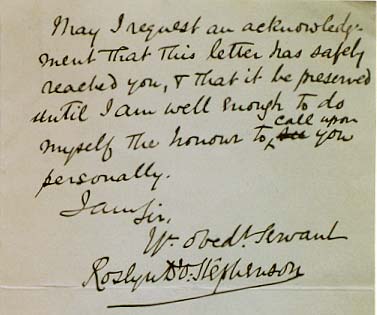 May I request an acknowledg-
ment that this letter has safely
reached you, & that it be preserved
until I am well enough to do
myself the honour to call upon you
personally.
I am Sir,
Yr. obedt. Servant
Roslyn D'O. Stephenson